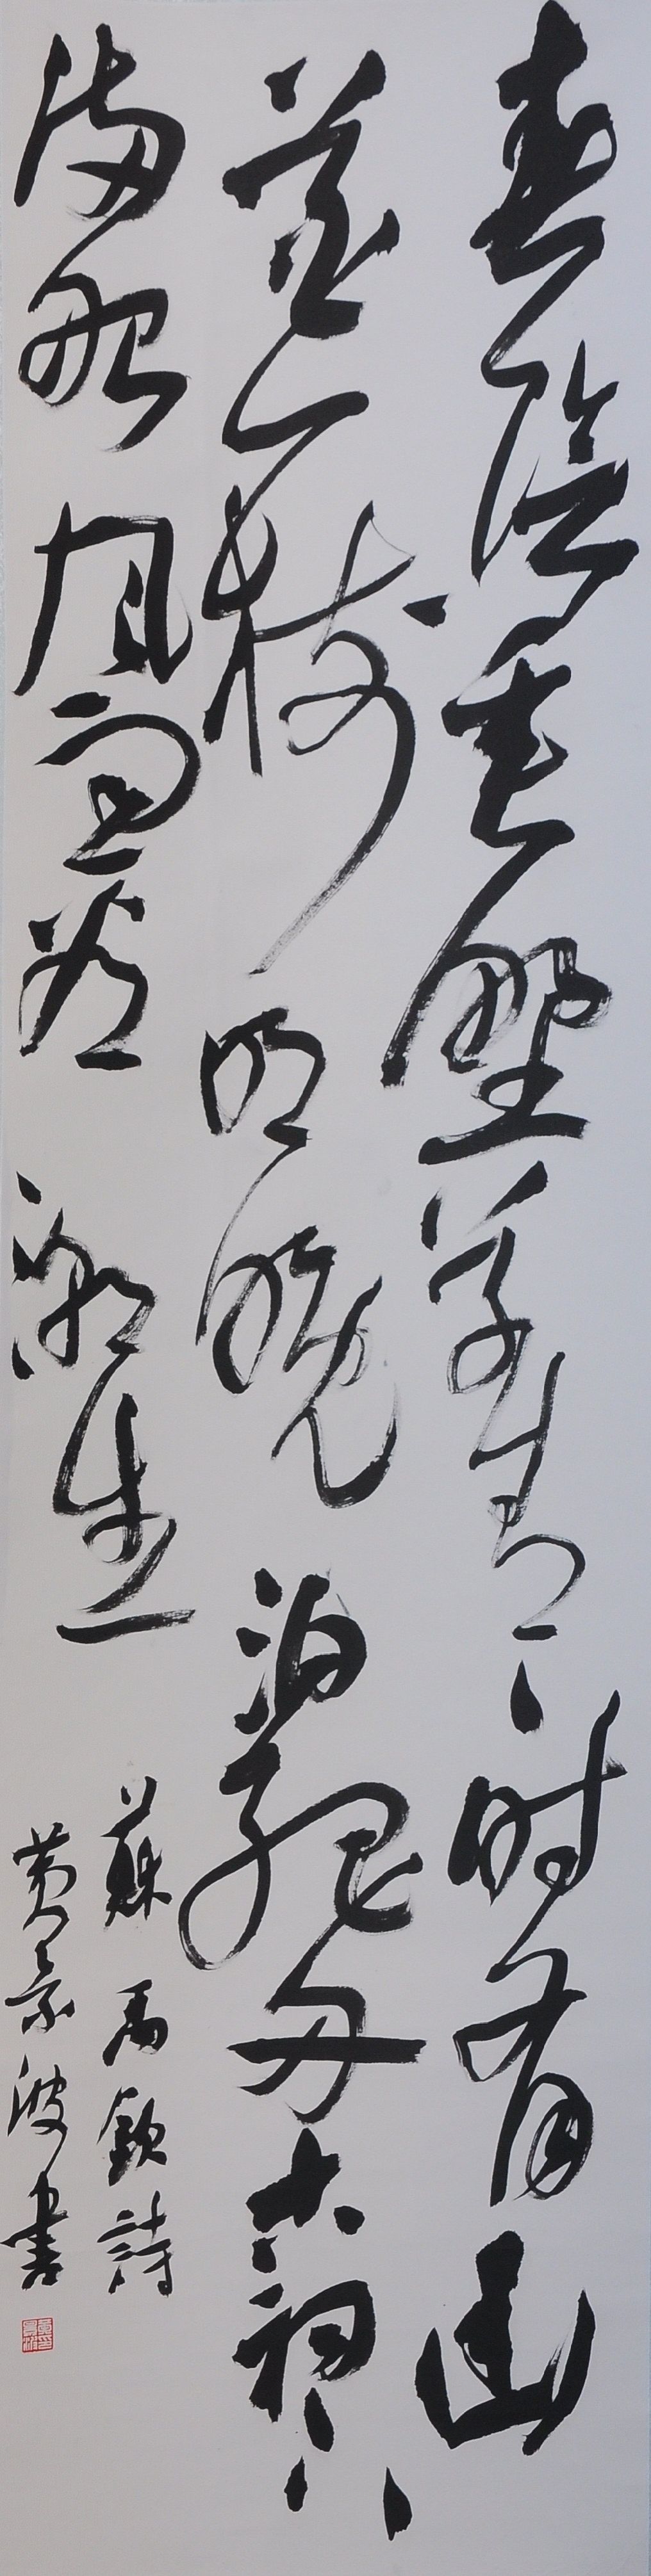 春陰垂野草青〻时有幽
花一樹明晚泊孤舟古祠下
滿船風雨看潮生
蘇舜欽詩
黄景波書